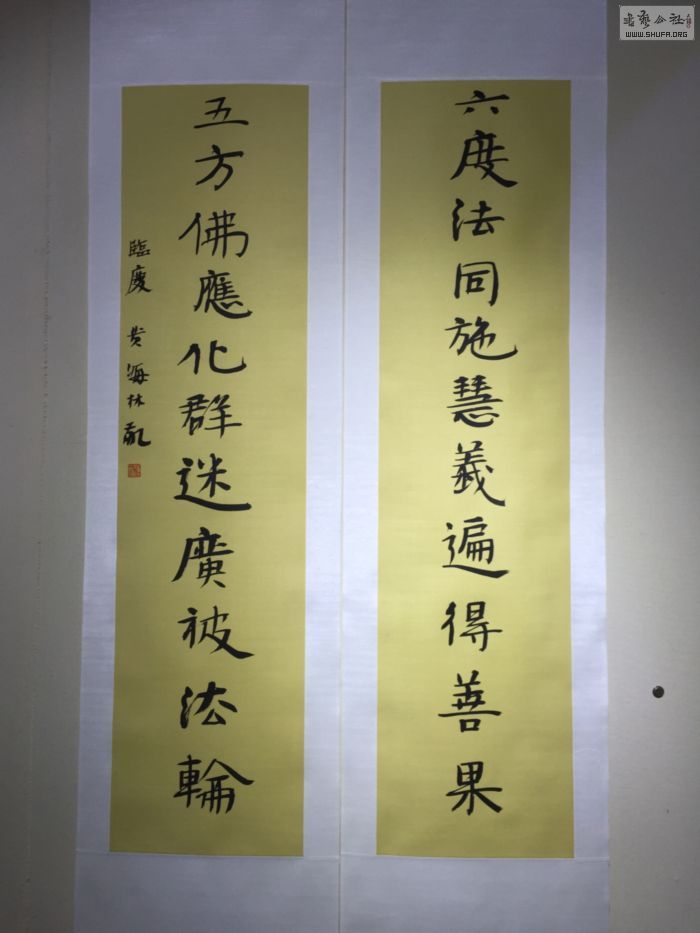 六度法同施慧義遍得善果
五方佛應化群迷廣被法輪
臨慶 黄海林敬
書藝公社
WWW.SHUFA.ORG